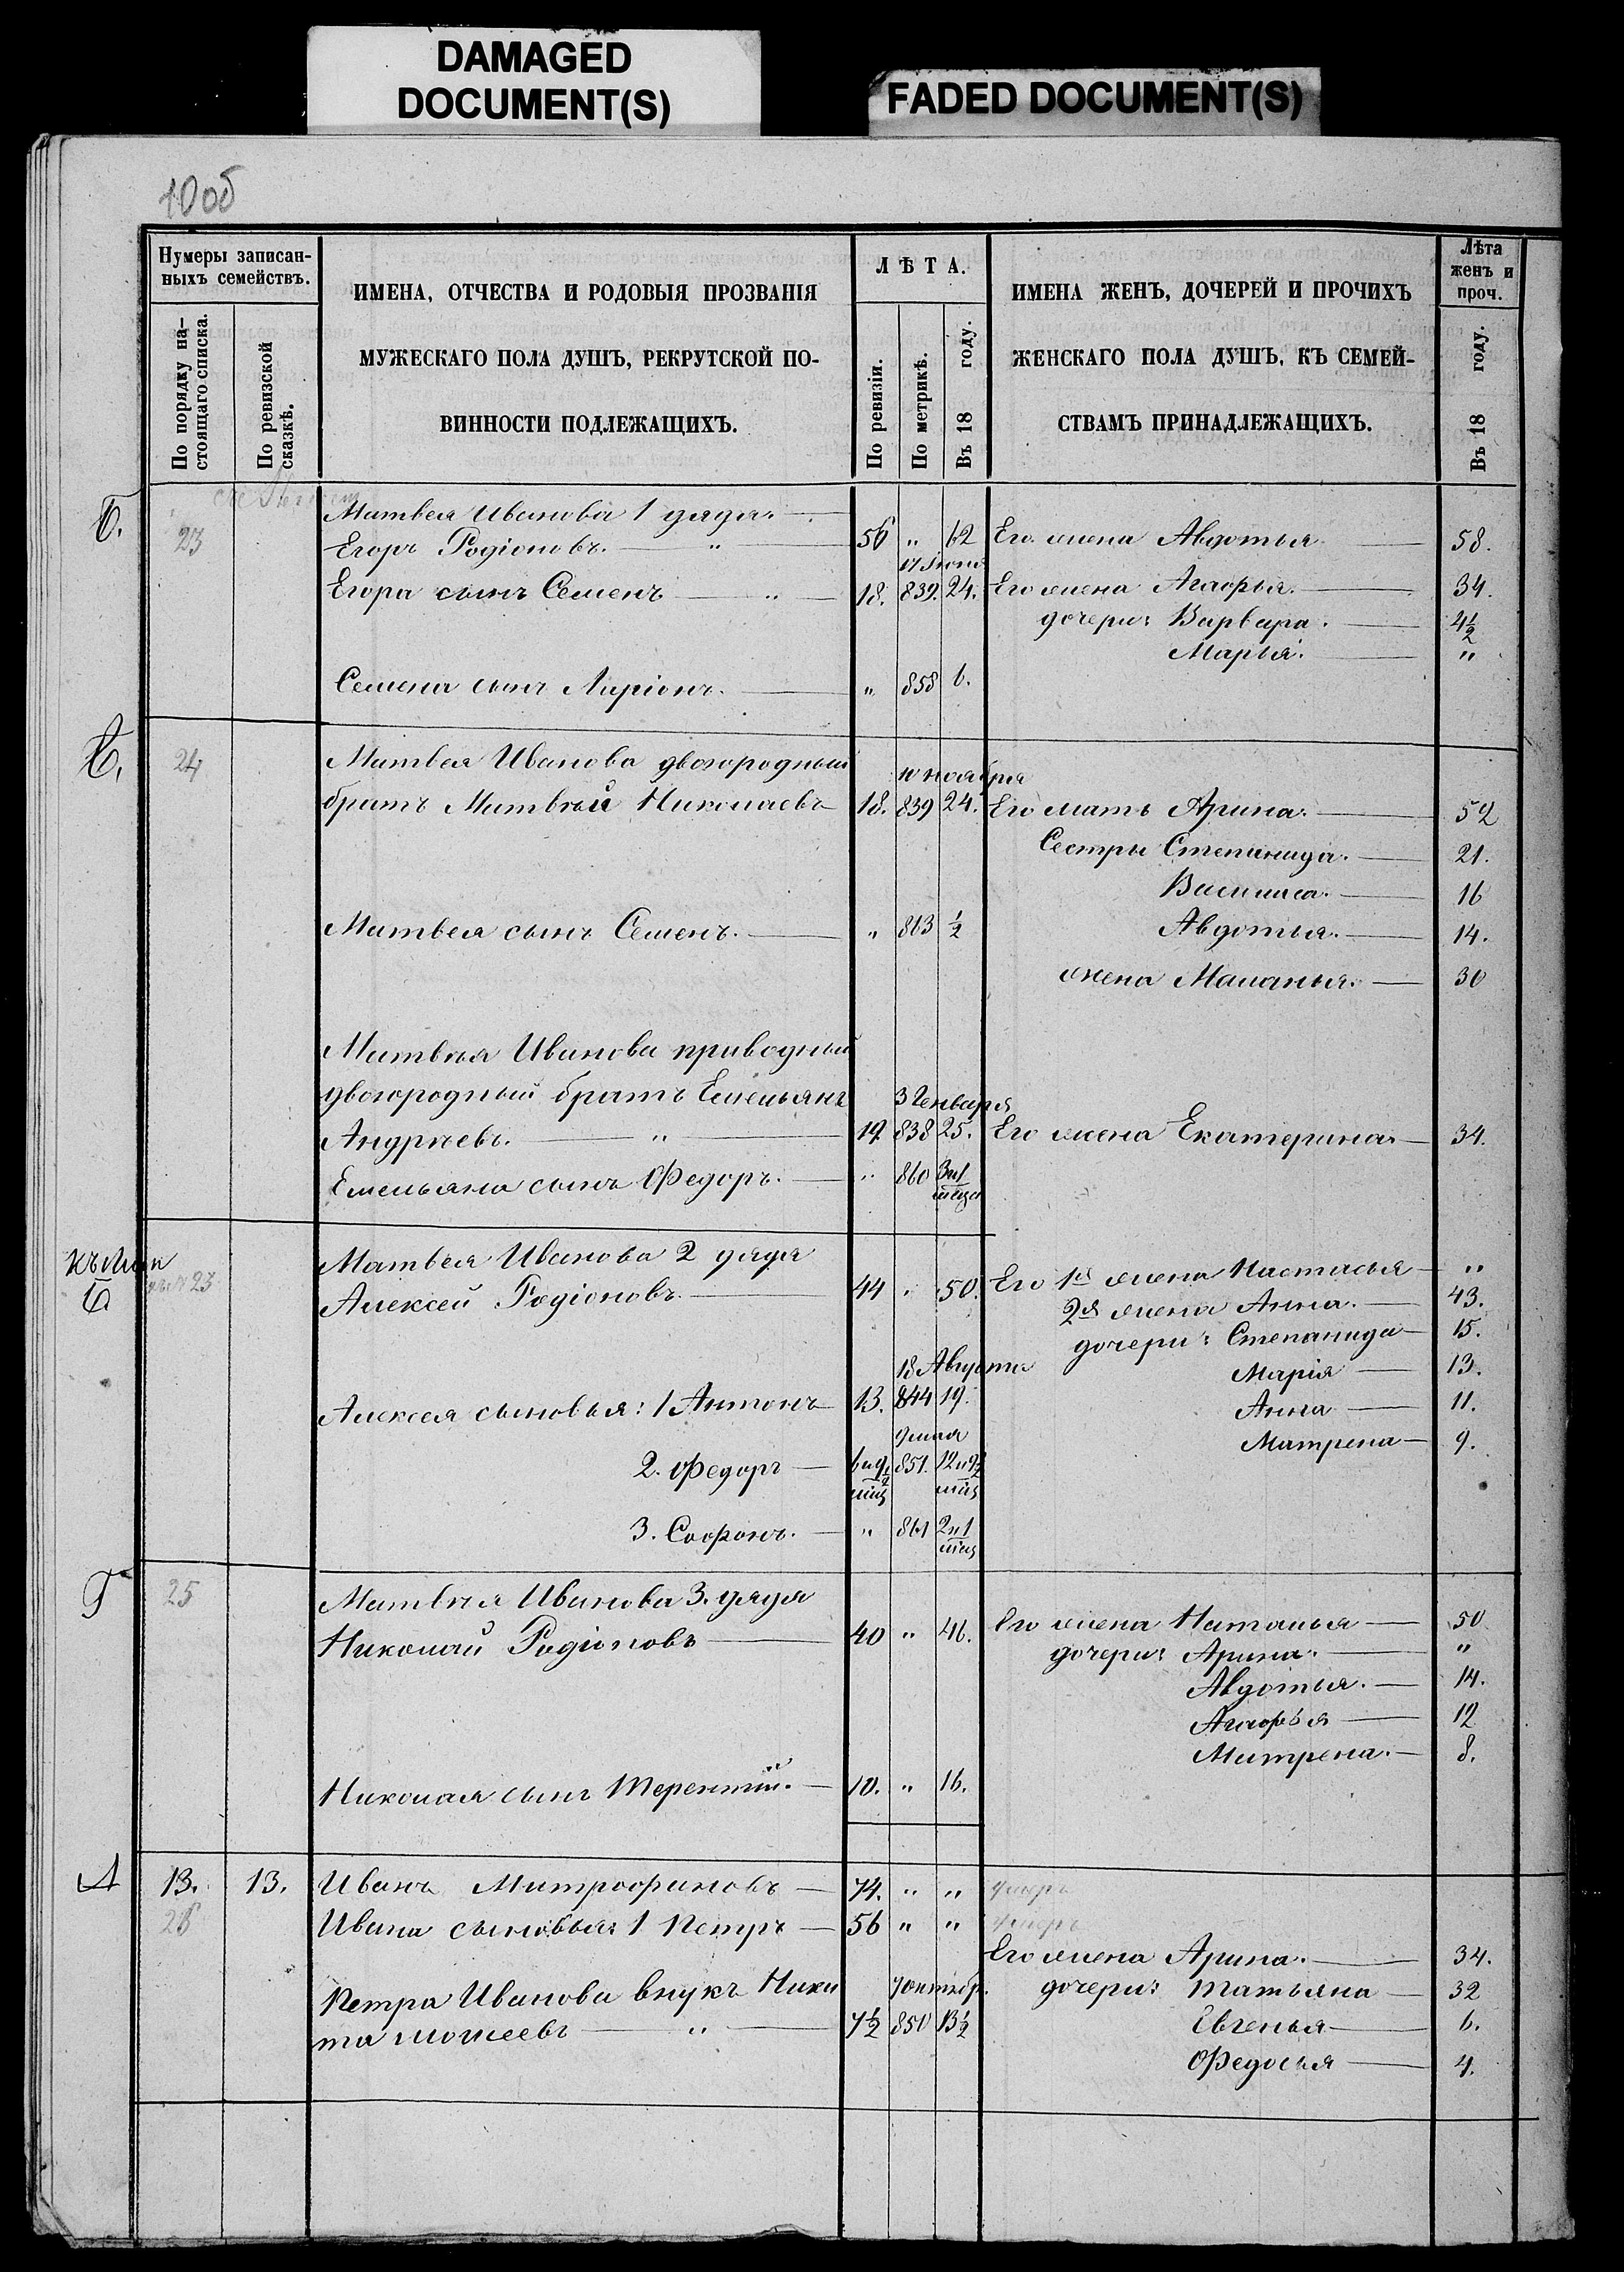 DAMAGED
DOCUMENT(S)
FADED DOCUMENT(S)
10об
Нумеры записан-
ныхъ семействъ.
По порядку на-
стоящаго списка.
По ревизской
сказкѣ.
ИМЕНА, ОТЧЕСТВА И РОДОВЫЯ ПРОЗВАНІЯ
МУЖЕСКАГО ПОЛА ДУШЪ, РЕКРУТСКОЙ ПО-
ВИННОСТИ ПОДЛЕЖАЩИХЪ.
ЛѢТА.
По ревизіи.
По метрикѣ.
Въ 18 году.
ИМЕНА ЖЕНЪ, ДОЧЕРЕЙ И ПРОЧИХЪ
ЖЕНСКАГО ПОЛА ДУШЪ, КЪ СЕМЕЙ-
СТВАМЪ ПРИНАДЛЕЖАЩИХЪ.
Лѣта
женъ и
проч.
Въ 18 году.
Б. 23 Матвея Иванова 1 дядя.
Егоръ Родіоновъ. — " 56 " 62 Его жена Авдотья — 58.
17 Іюня
Егора сынъ Семенъ — " 18. 839. 24. Его жена Агафья. — 34.
дочери: Варвара. — 4½
Марья. — "
Семена сынъ Ларіонъ. — " 858 6.
24 Матвея Иванова двоюродный
10 ноября
братъ Матвѣй Николаевъ 18. 839 24. Его мать Арина. — 52
Сестры Степанида. — 21.
Василиса. — 16
Матвея сынъ Семенъ. — " 863 ½ Авдотья. — 14.
жена Маланья. — 30
Матвѣя Иванова приводный
двоюродный братъ Емельянъ 3 Генваря
Андрѣевъ. — " 19 838 25. Его жена Екатерина. — 34.
Емельяна сынъ Федоръ. — " 860 3 и 1 мѣсяца
Б 23 Матвѣя Иванова 2 дядя
Алексей Родіоновъ. — 44 " 50. Его 1я жена Настасья — "
2я жена Анна. — 43.
дочери: Степанида — 15.
18 Августа Марія — 13.
Алексея сыновья: 1 Антонъ 13. 844 19. Анна — 11.
Матрена — 9.
2. Федоръ — 851. 12
3. Софронъ. — " 861 2 и 1
Г 25 Матвѣя Иванова 3. дядя
Николай Родіоновъ — 40 " 46. Его жена Наталья — 50
дочери: Арина. — "
Авдотья. — 14.
Агафья — 12
Матрена. — 8.
Николая сынъ Терентій. — 10. " 16.
А 13. 13. Иванъ Митрофановъ — 74. " " умеръ
Ивана сыновья: 1 Петръ — 56 " " умеръ
Его жена Арина. — 34.
Петра Иванова внукъ Ники 7 октябр. дочери: Татьяна — 32
та Мосеевъ — " 7½ 850 13½ Евгенья — 6.
Федосья — 4.